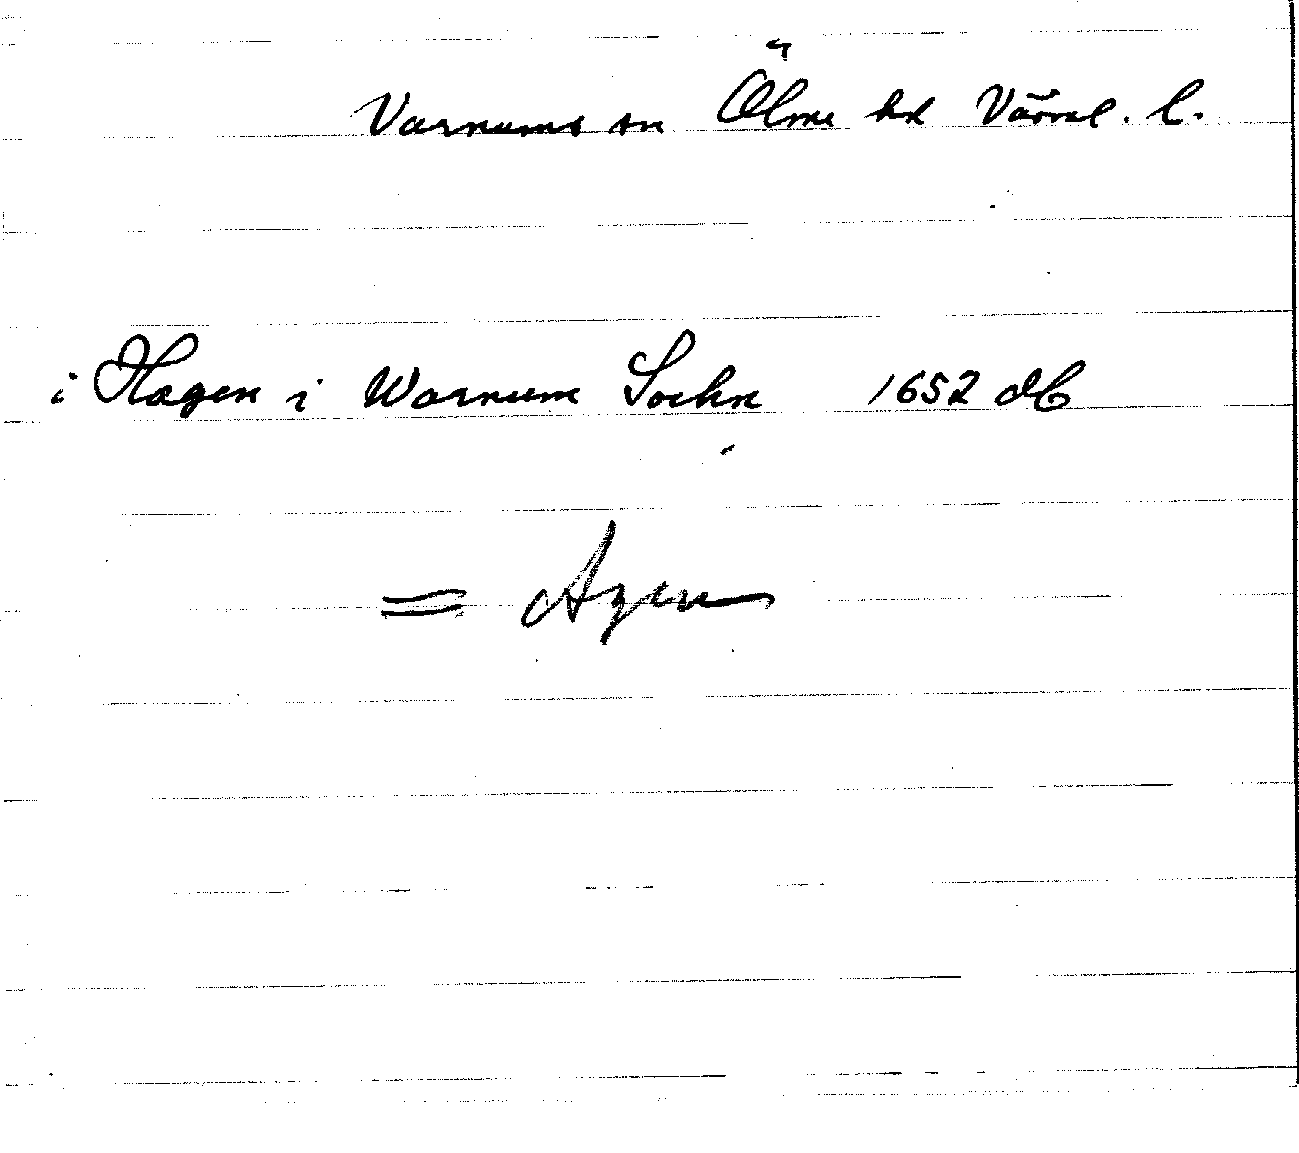 Varnums sn Ölme hd Värml. l.
i Hagen i Warnum Sockn 1652 db
= Agen